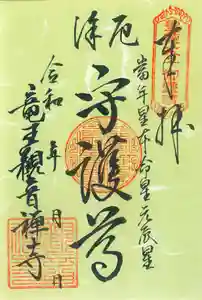 奉拝
當年星本命星元辰星
厄除
守護尊
令和 年 月 日
竜王観音禅寺